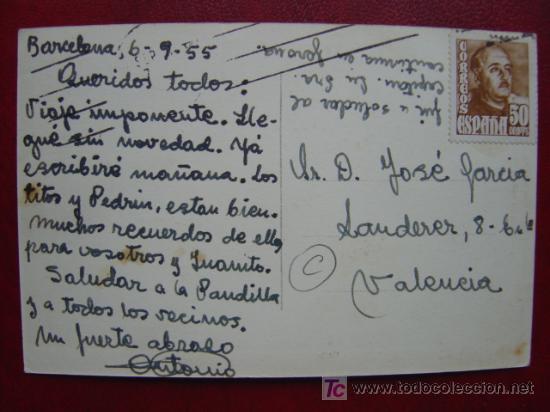 Barcelona, 6-9-55
Queridos todos:
Viaje imponente. Lle-
gué sin novedad. Yá
escribiré mañana. Los
titos y Pedrin, estan bien.
muchos recuerdos de ellos
para vosotros y Juanito.
Saludar a la Pandilla
y a todos los vecinos.
un fuerte abrazo
Antonio
fui a saludar al
Capitan. Su Sra.
continua en Gerona.
CORREOS
50
CENTS
ESPAÑA
Sr. D. José Garcia
Landerer, 8-6
Valencia
C
todocoleccion
www.todocoleccion.net
tc